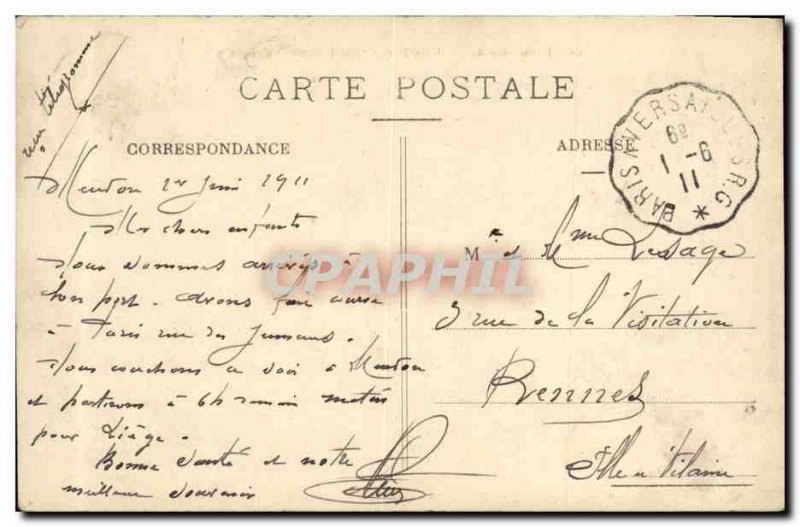 télégramme
CARTE POSTALE
CORRESPONDANCE
ADRESSE
PARIS A VERSAILLES R.G
6e
1 -6
11
B
Meudon 1er Juin 1911
Mes chers enfants
Nous sommes arrivés à
bon port. avons fait course
à Paris rue des
Nous couchons ce soir à Meudon
et partirons à 6h demain matin
pour Liège.
Bonne santé et notre
meilleur souvenir
M. r et Mme Lesage
3 rue de la Visitation
Rennes
Ille et Vilaine
CPAPHIL